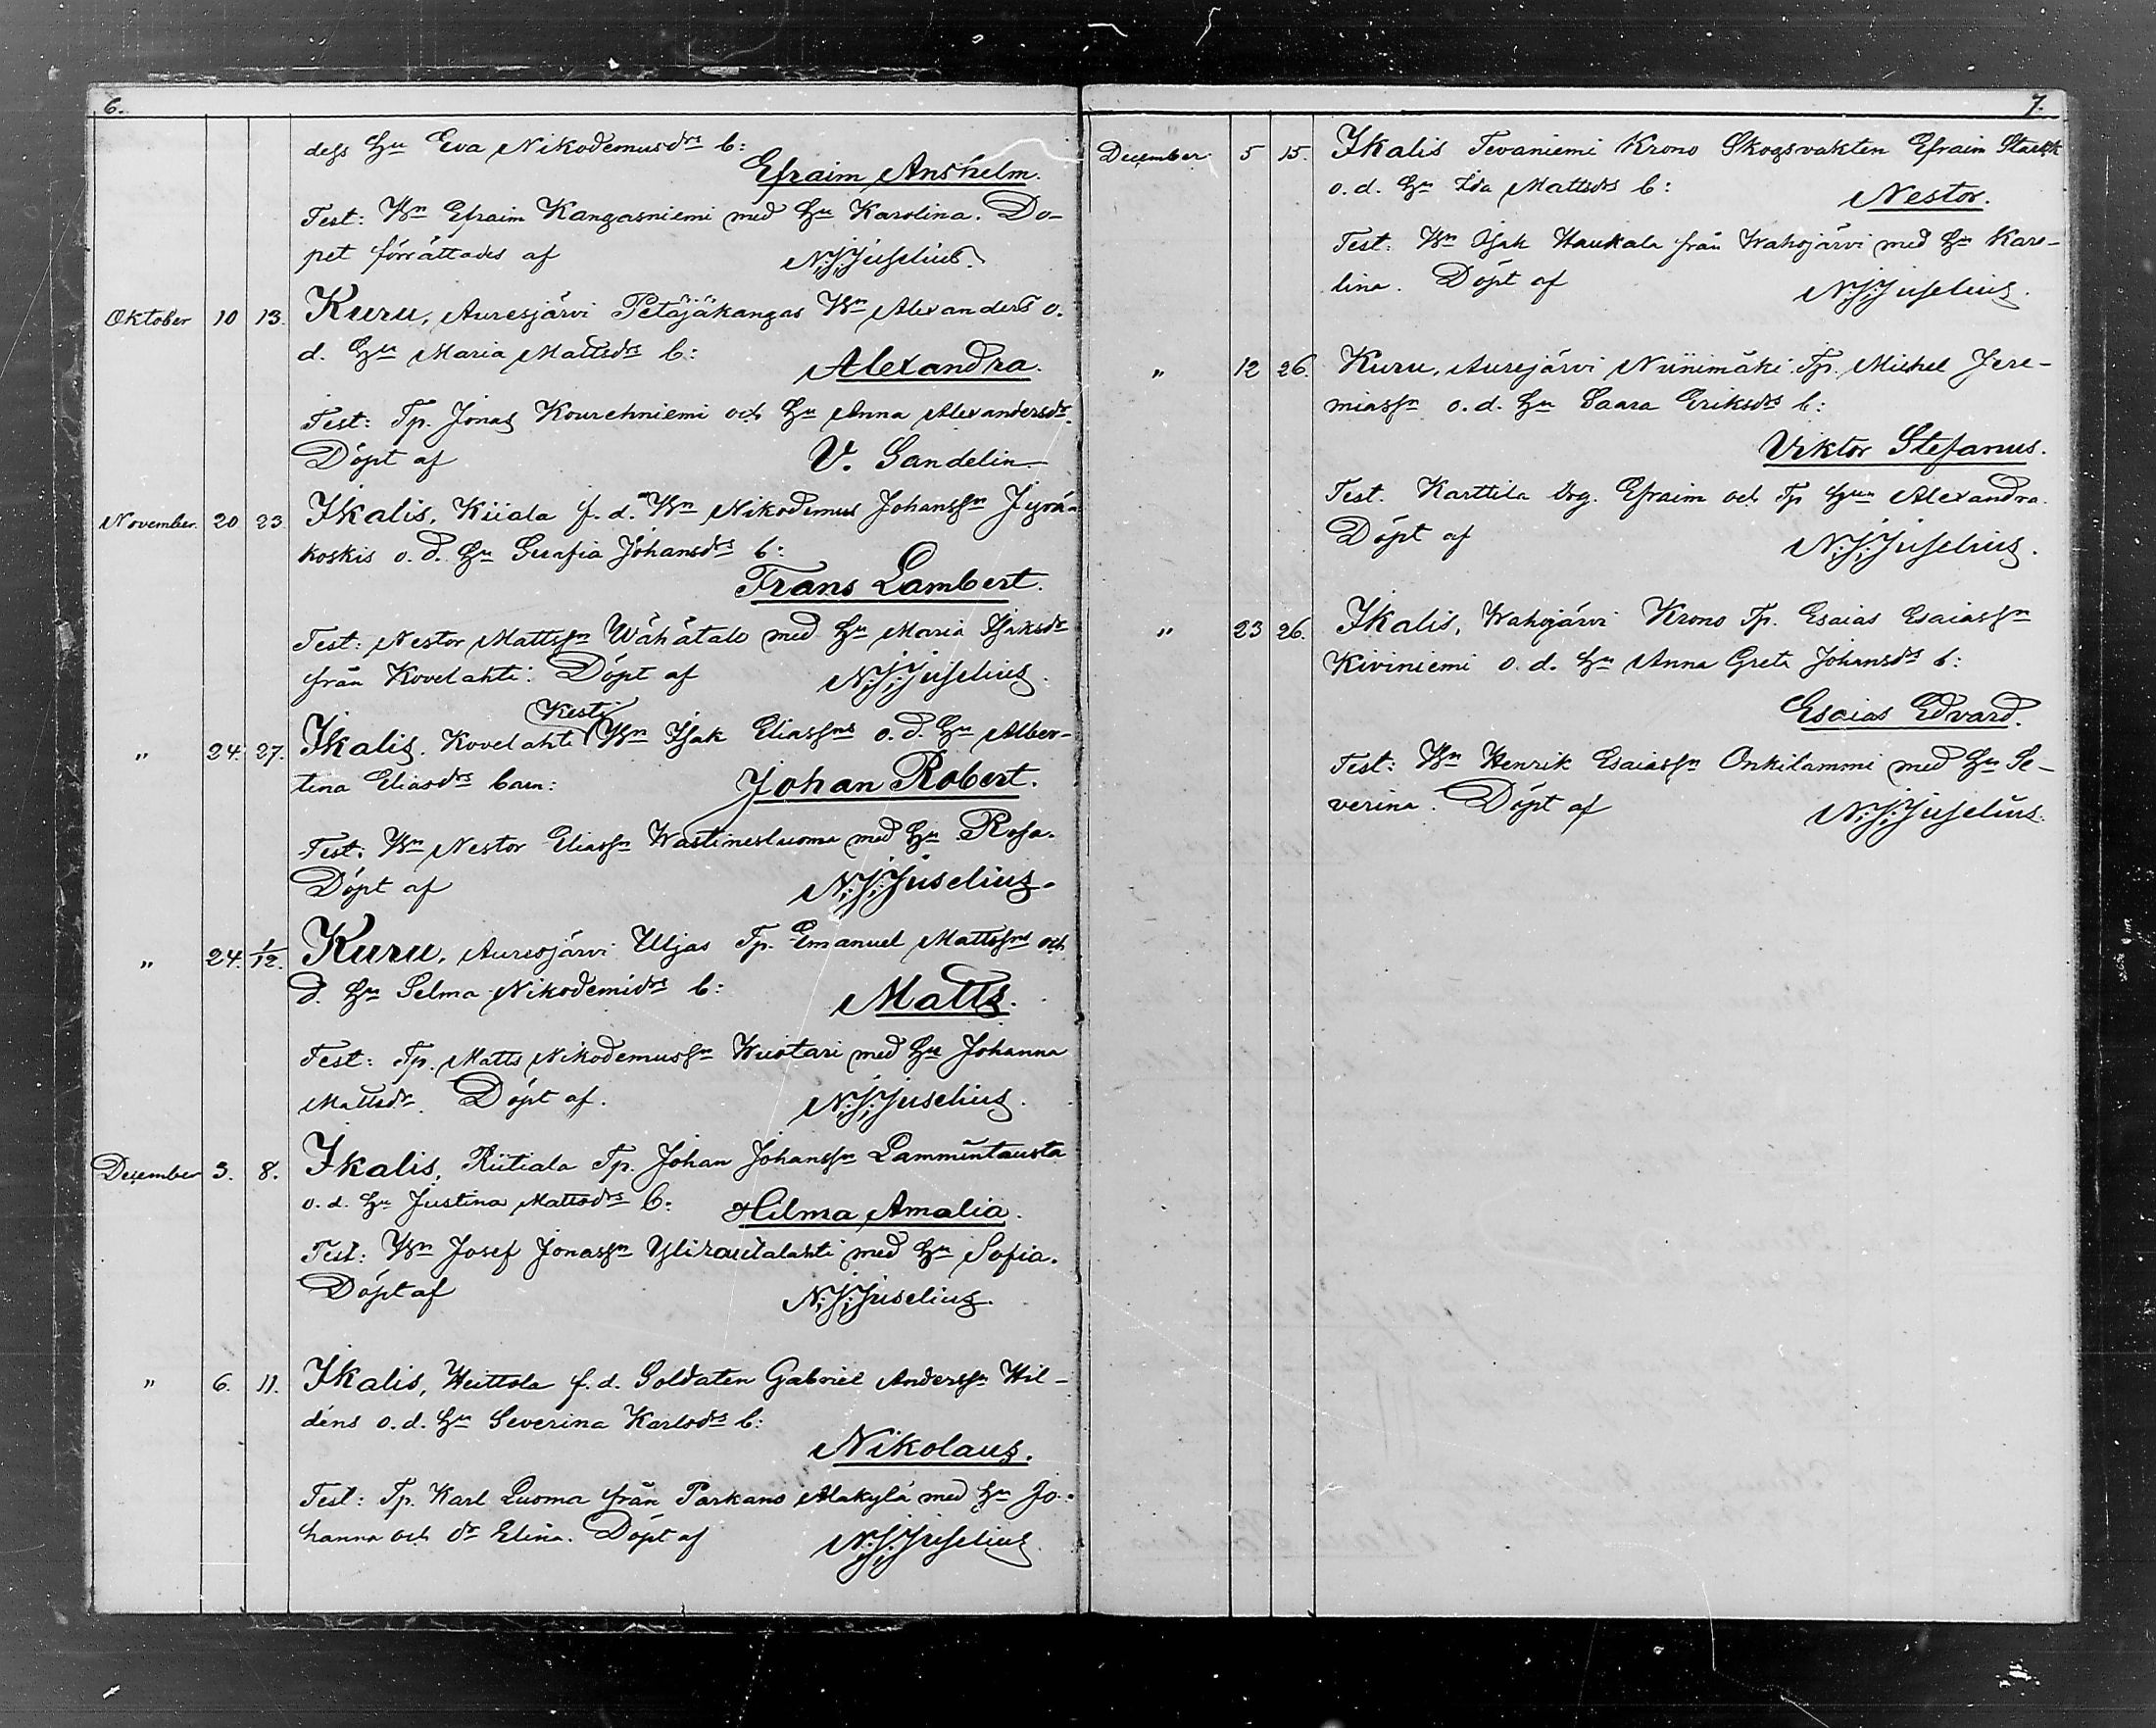 6.
dess Hu Eva Nikodemusdrs b:
Efraim Anshelm.
Test: Bn Efraim Kangasniemi med Hu Karolina. Do-
pet förrättades af N.J.Juselius.
Oktober 10 13. Kuru, Auresjärvi Petäjäkangas Bn Alexanders o.
d. Hu Maria Mattsdrs b: Alexandra.
Test: Tp. Jonas Kourehniemi och Hu Anna Alexandersdr.
Döpt af V. Sandelin
November. 20 23. Ikalis, Kiiala f.d. Bn Nikodemus Johanssn Jyrä-
koskis o. d. Hu Serafia Johansdrs b:
Frans Lambert.
Test: Nestor Mattssn Wähätalo med Hu Maria Isaksdr
från Kovelahti: Döpt af N.J.Juselius.
Kesti
" 24. 27. Ikalis. Kovelahti Bn Isak Eliassns o. d. Hu Alber-
tina Eliasdrs barn: Johan Robert.
Test: Bn Nestor Eliassn Wastinesluoma med Hu Rosa.
Döpt af N.J.Juselius.
" 24. 1/12. Kuru, Auresjärvi Uljas Tp. Emanuel Mattssns och
d. Hu Selma Nikodemidrs b: Matts.
Test: Tp. Matts Nikodemussn Wuotari med Hu Johanna
Mattsdr. Döpt af. N.J.Juselius.
December 3. 8. Ikalis, Riitiala Tp. Johan Johanssn Lammintausta
o. d. Hu Justina Mattsdrs b: Hilma Amalia.
Test: Bn Josef Jonassn Ylirautalahti med Hu Sofia.
Döpt af N.J.Juselius.
" 6. 11. Ikalis, Heittola f. d. Soldaten Gabriel Anderssn Hil-
déns o. d. Hu Severina Karlsdrs b:
Nikolaus.
Test: Tp. Karl Luoma från Parkano Alakylä med Hu Jo-
hanna och dr Elina. Döpt af N.J.Juselius
7.
December 5 15. Ikalis Tevaniemi Krono Skogsvakten Efraim
o. d. Hu Ida Mattsdrs b: Nestor.
Test: Bn Isak Haukala från Wahojärvi med Hu Karo-
lina. Döpt af N.J.Juselius.
" 12 26. Kuru, Aurejärvi Niinimäki Tp. Michel Jere-
miassn o. d. Hu Saara Eriksdrs b:
Viktor Stefanus.
Test. Karttila Drg. Efraim och Tp Hun Alexandra.
Döpt af N.J.Juselius.
" 23 26. Ikalis, Wahojärvi Krono Tp. Esaias Esaiassn
Kiviniemi o. d. Hu Anna Greta Johansdrs b:
Esaias Edvard.
Test: Bn Henrik Esaiassn Onkilammi med Hu Se-
verina. Döpt af N.J.Juselius.